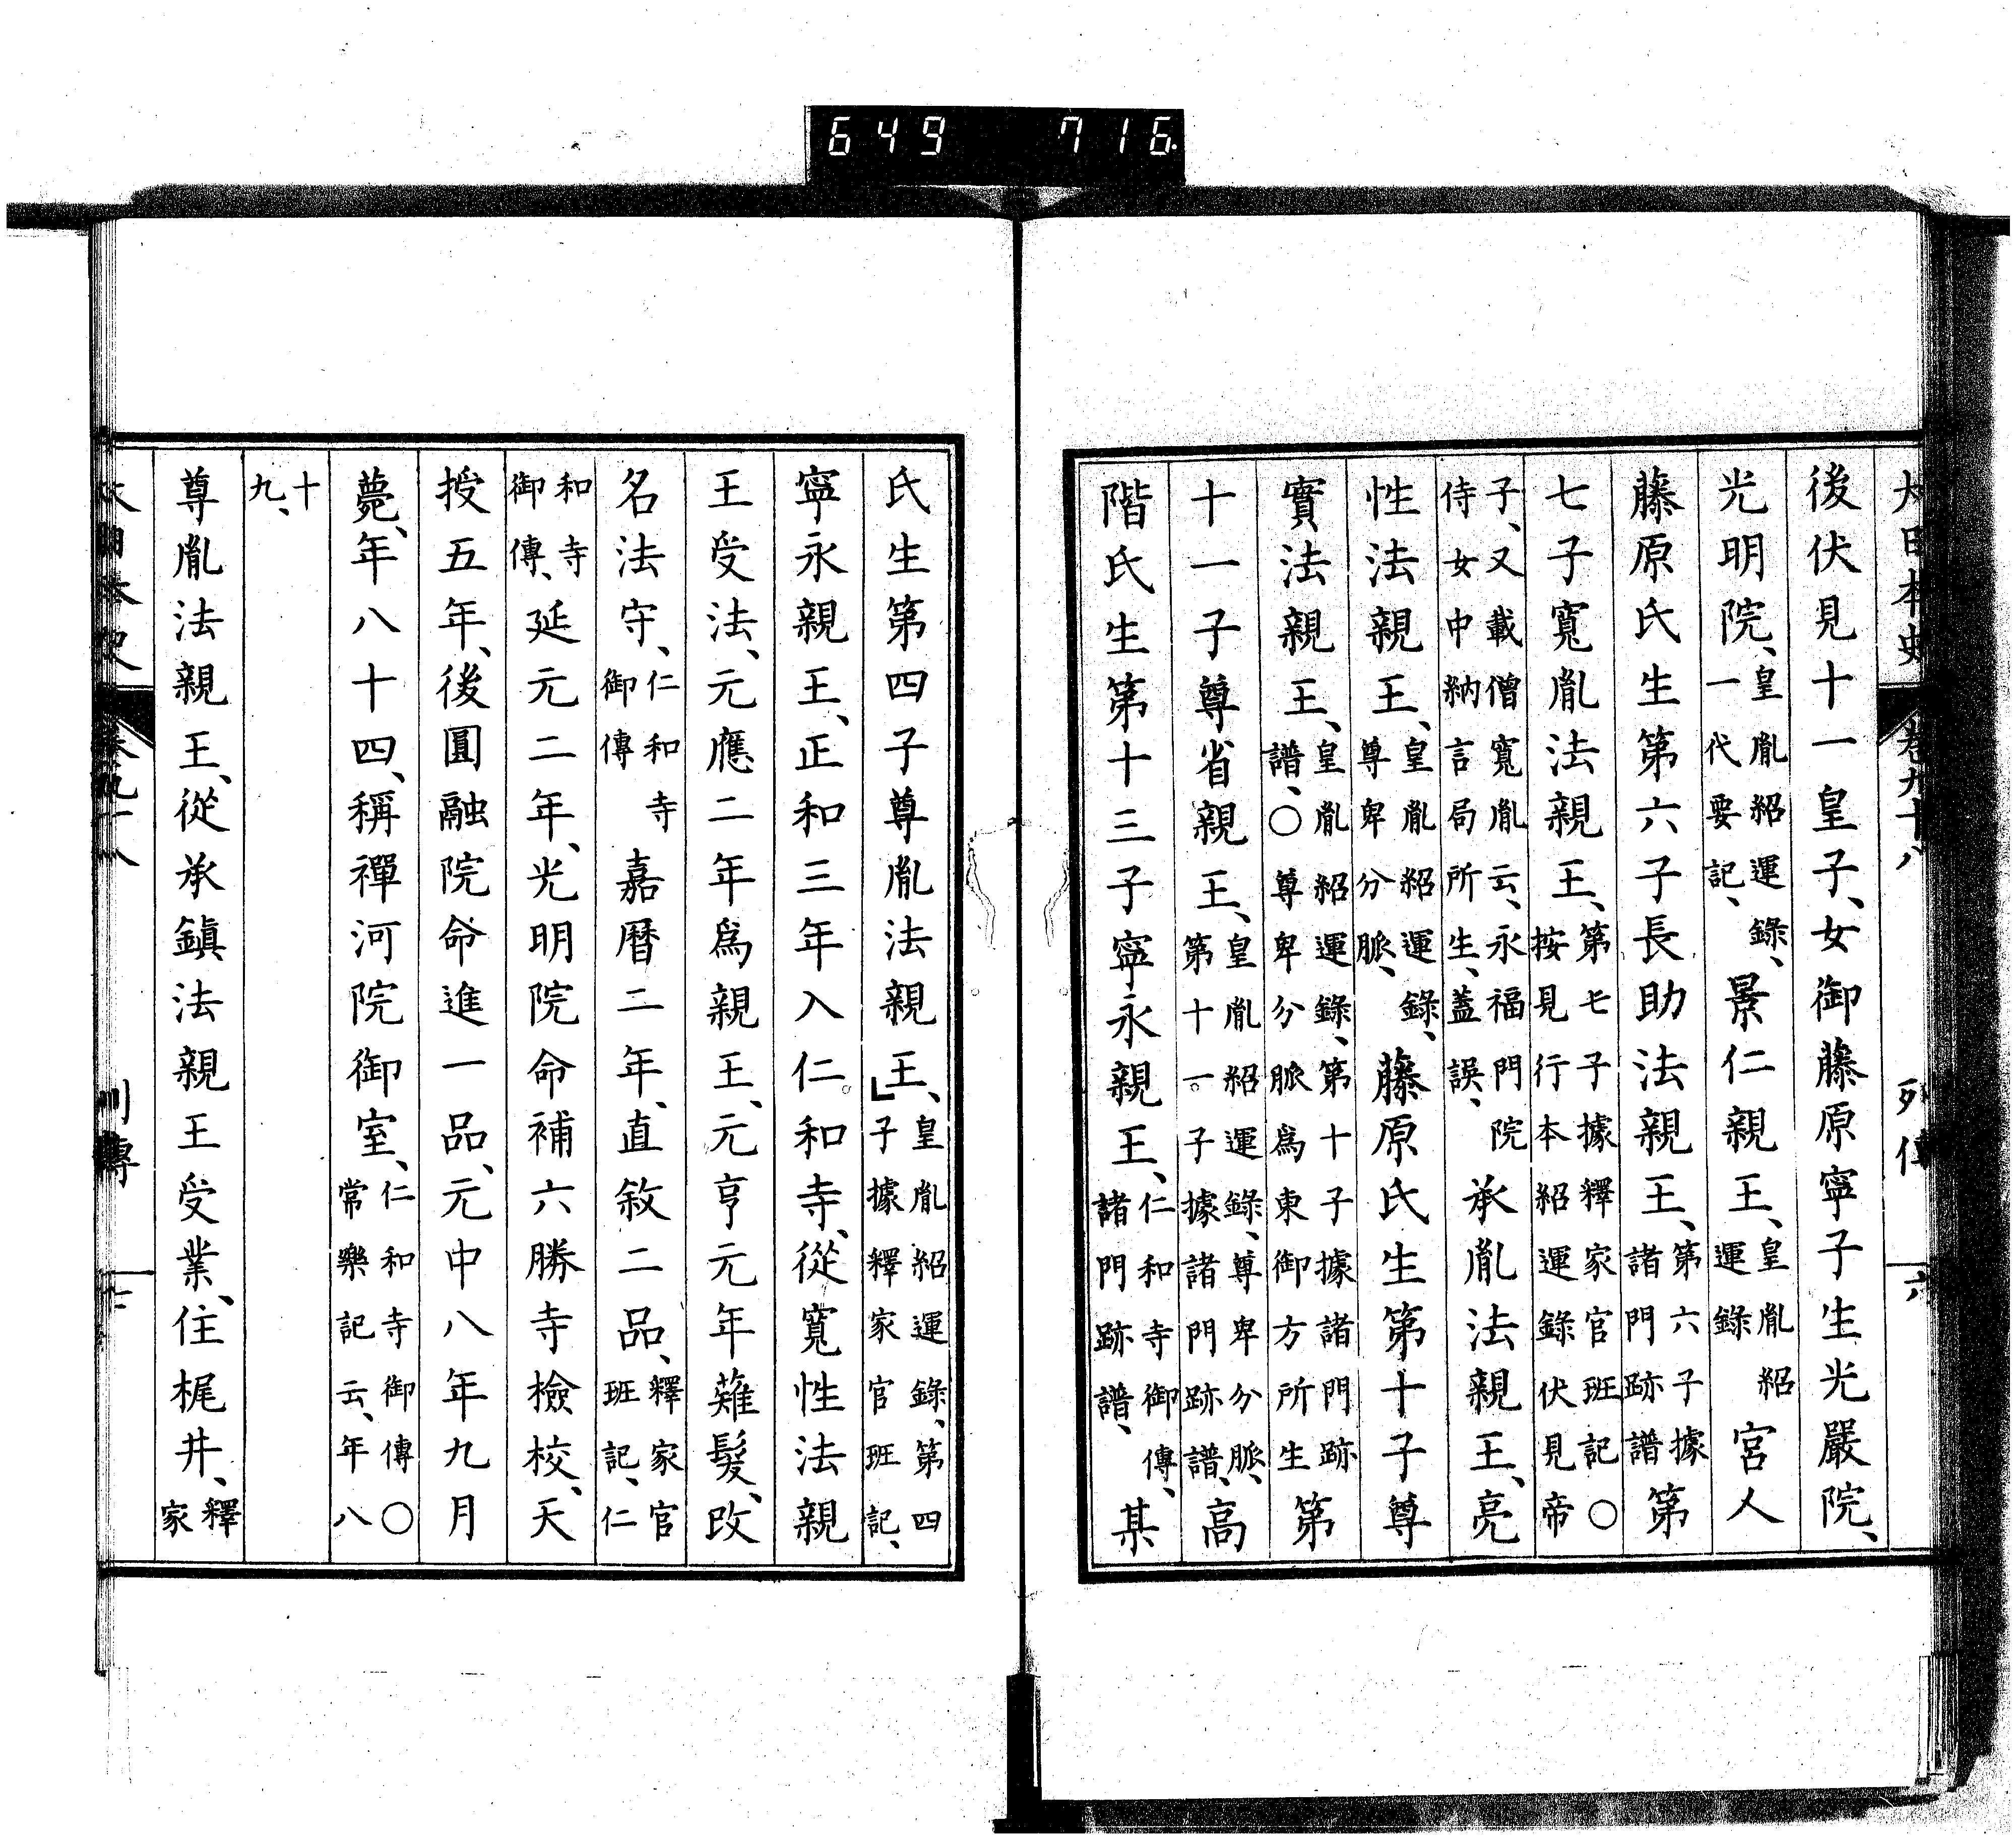 649 716
大日本史 卷九十八 列傳 六
後伏見十一皇子、女御藤原寧子生光嚴院、
光明院、皇胤紹運錄、一代要記、景仁親王、皇胤紹運錄宮人
藤原氏生第六子長助法親王、第六子據諸門跡譜第
七子寬胤法親王、第七子據釋家官班記○按見行本紹運錄伏見帝
子、又載僧寬胤云、永福門院侍女中納言局所生、蓋誤、承胤法親王、亮
性法親王、皇胤紹運錄、尊卑分脈、藤原氏生第十子尊
實法親王、皇胤紹運錄、第十子據諸門跡譜、○尊卑分脈爲東御方所生第
十一子尊省親王、皇胤紹運錄、尊卑分脈、第十一子據諸門跡譜、高
階氏生第十三子寧永親王、仁和寺御傳、諸門跡譜、某
氏生第四子尊胤法親王、皇胤紹運錄、第四子據釋家官班記、
寧永親王、正和三年入仁和寺、從寬性法親
王受法、元應二年爲親王、元亨元年薙髮、改
名法守、仁和寺御傳嘉曆二年、直敘二品、釋家官班記、仁
和寺御傳、延元二年、光明院命補六勝寺檢校、天
授五年、後圓融院命進一品、元中八年九月
薨、年八十四、稱禪河院御室、仁和寺御傳○常樂記云、年八
十九、
尊胤法親王、從承鎭法親王受業、住梶井、釋家
大日本史 卷九十八 列傳 七